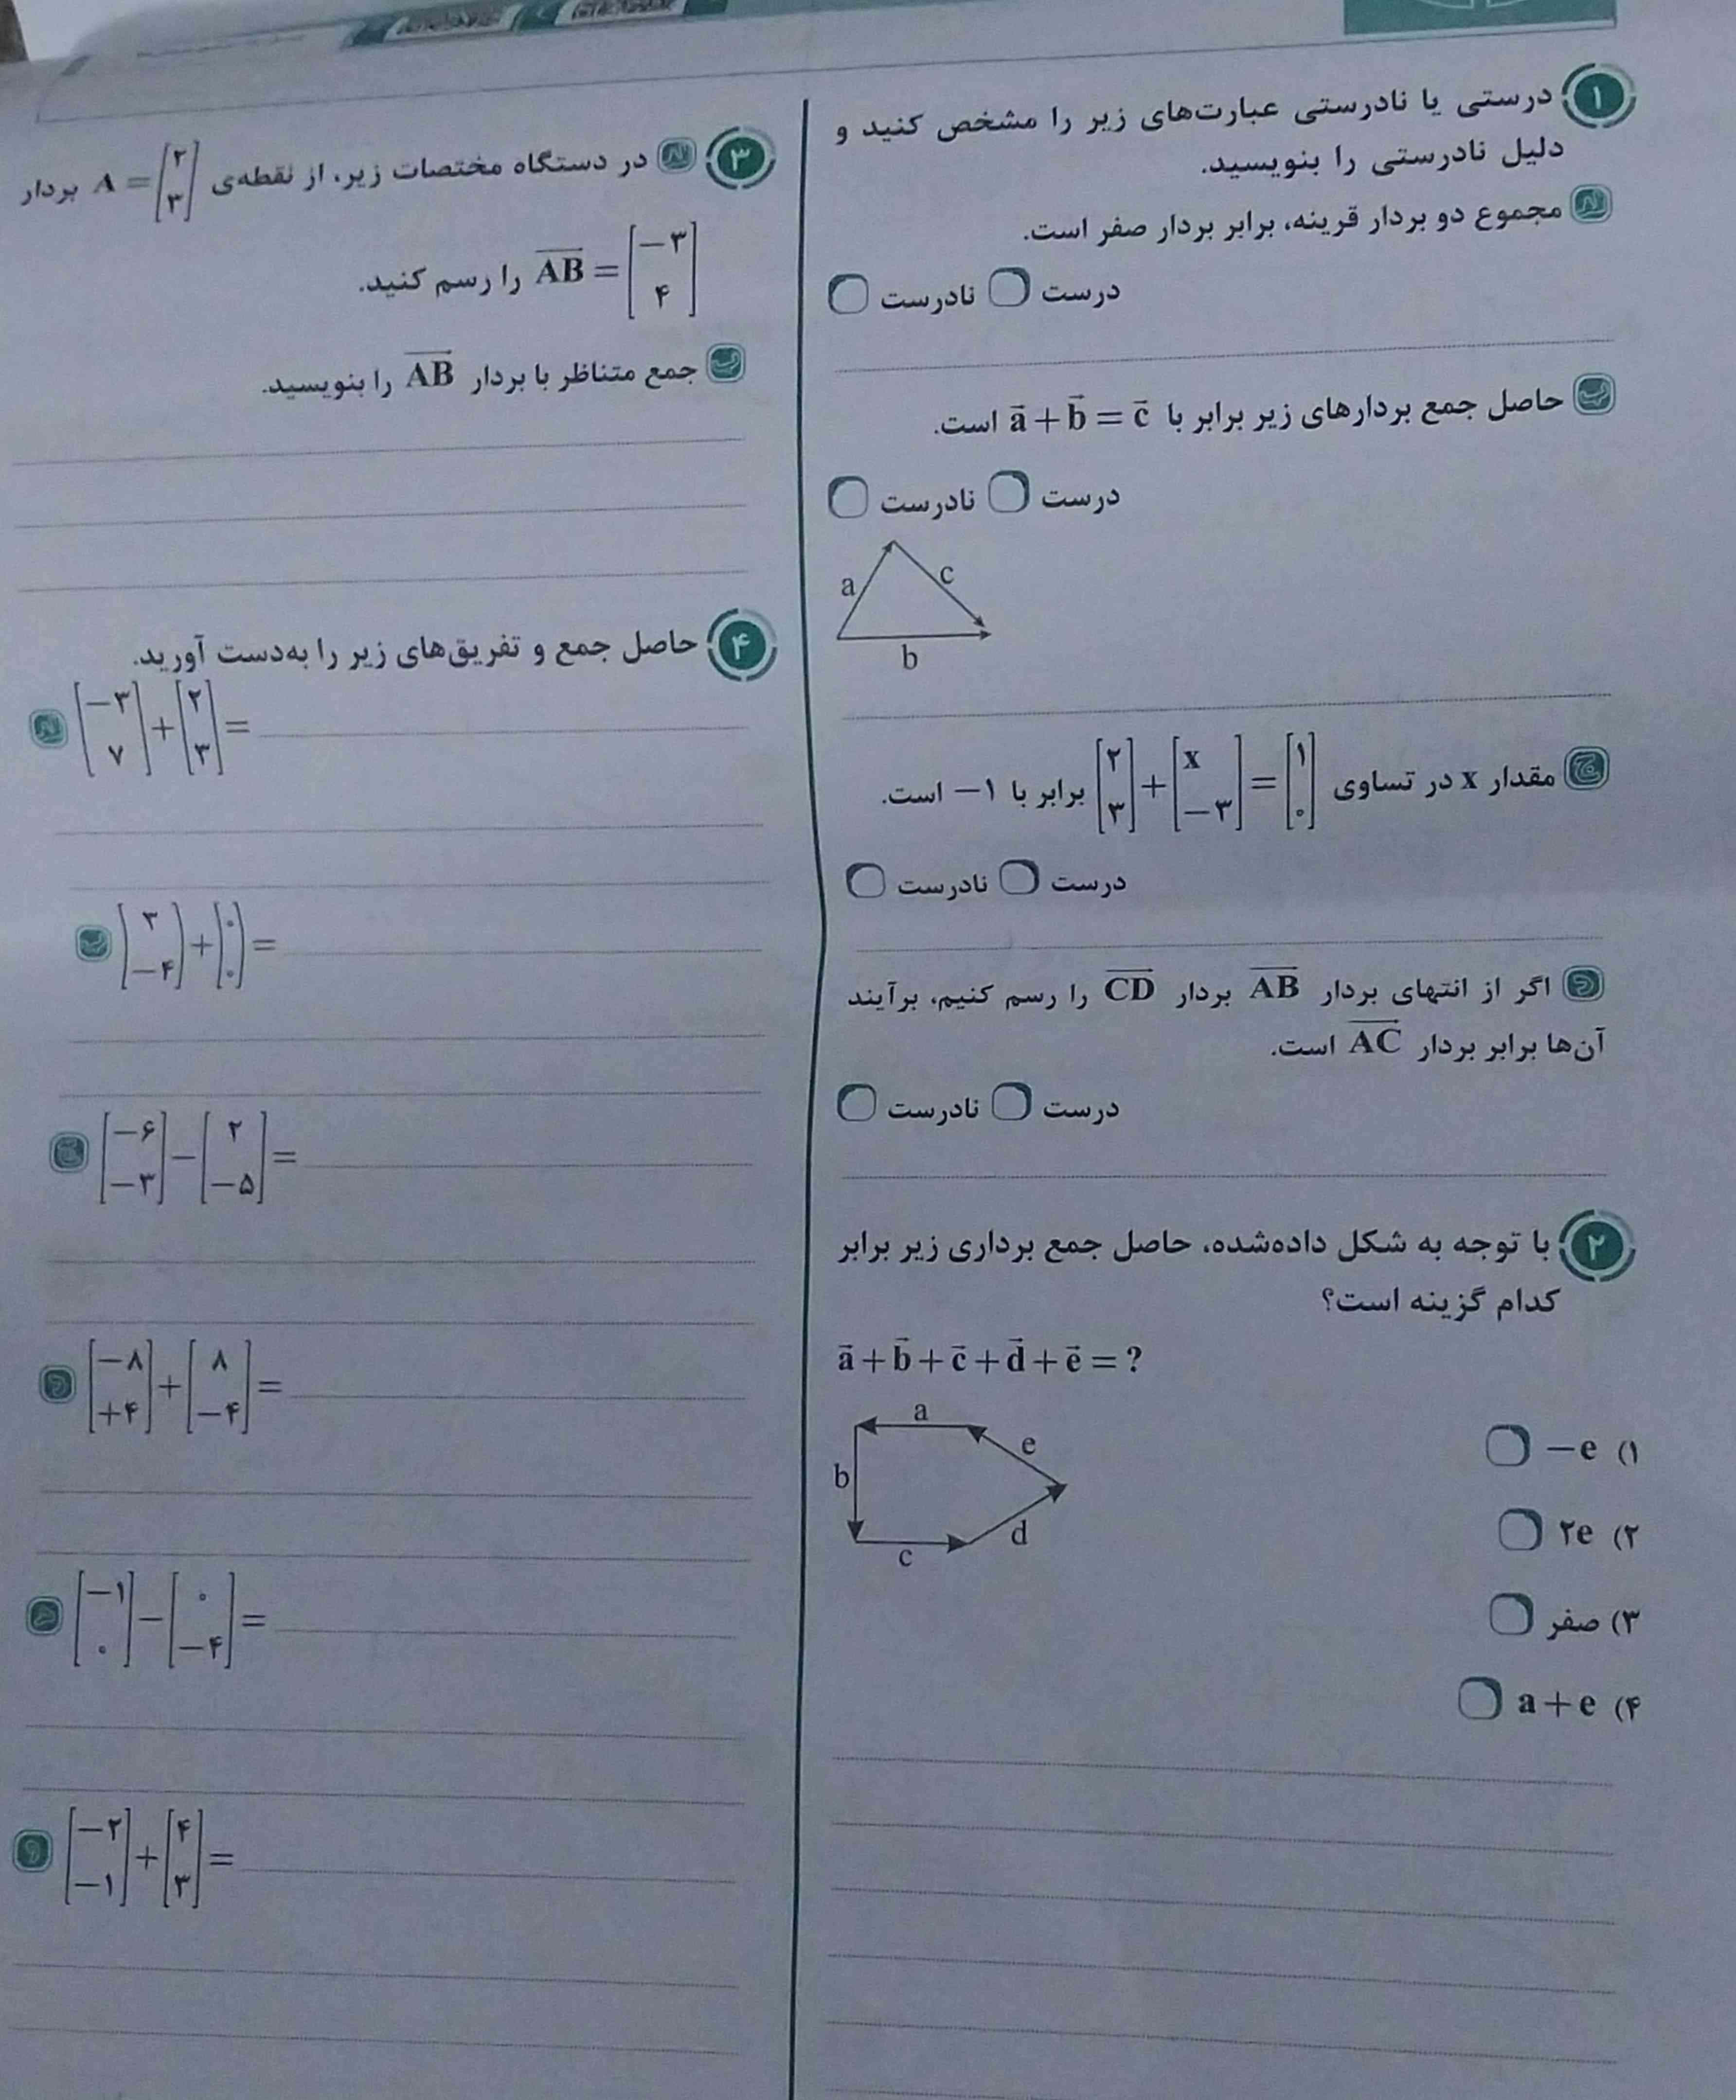 ۱ درستی یا نادرستی عبارت‌های زیر را مشخص کنید و
دلیل نادرستی را بنویسید.
الف مجموع دو بردار قرینه، برابر بردار صفر است.
درست نادرست
ب حاصل جمع بردارهای زیر برابر با a⃗ + b⃗ = c⃗ است.
درست نادرست
a
c
b
ج مقدار x در تساوی [۲ ۳] + [x −۳] = [۱ ۰] برابر با ۱− است.
درست نادرست
د اگر از انتهای بردار AB بردار CD را رسم کنیم، برآیند
آن‌ها برابر بردار AC است.
درست نادرست
۲ با توجه به شکل داده‌شده، حاصل جمع برداری زیر برابر
کدام گزینه است؟
a⃗ + b⃗ + c⃗ + d⃗ + e⃗ = ?
a
e
b
d
c
۱) −e
۲) ۲e
۳) صفر
۴) a+e
۳ الف در دستگاه مختصات زیر، از نقطه‌ی A = [۲ ۳] بردار
AB = [−۳ ۴] را رسم کنید.
ب جمع متناظر با بردار AB را بنویسید.
۴ حاصل جمع و تفریق‌های زیر را به‌دست آورید.
الف [−۳ ۷] + [۲ ۳] =
ب [۳ −۴] + [۰ ۰] =
ج [−۶ −۳] − [۲ −۵] =
د [−۸ +۴] + [۸ −۴] =
ه [−۱ ۰] − [۰ −۴] =
و [−۲ −۱] + [۴ ۳] =